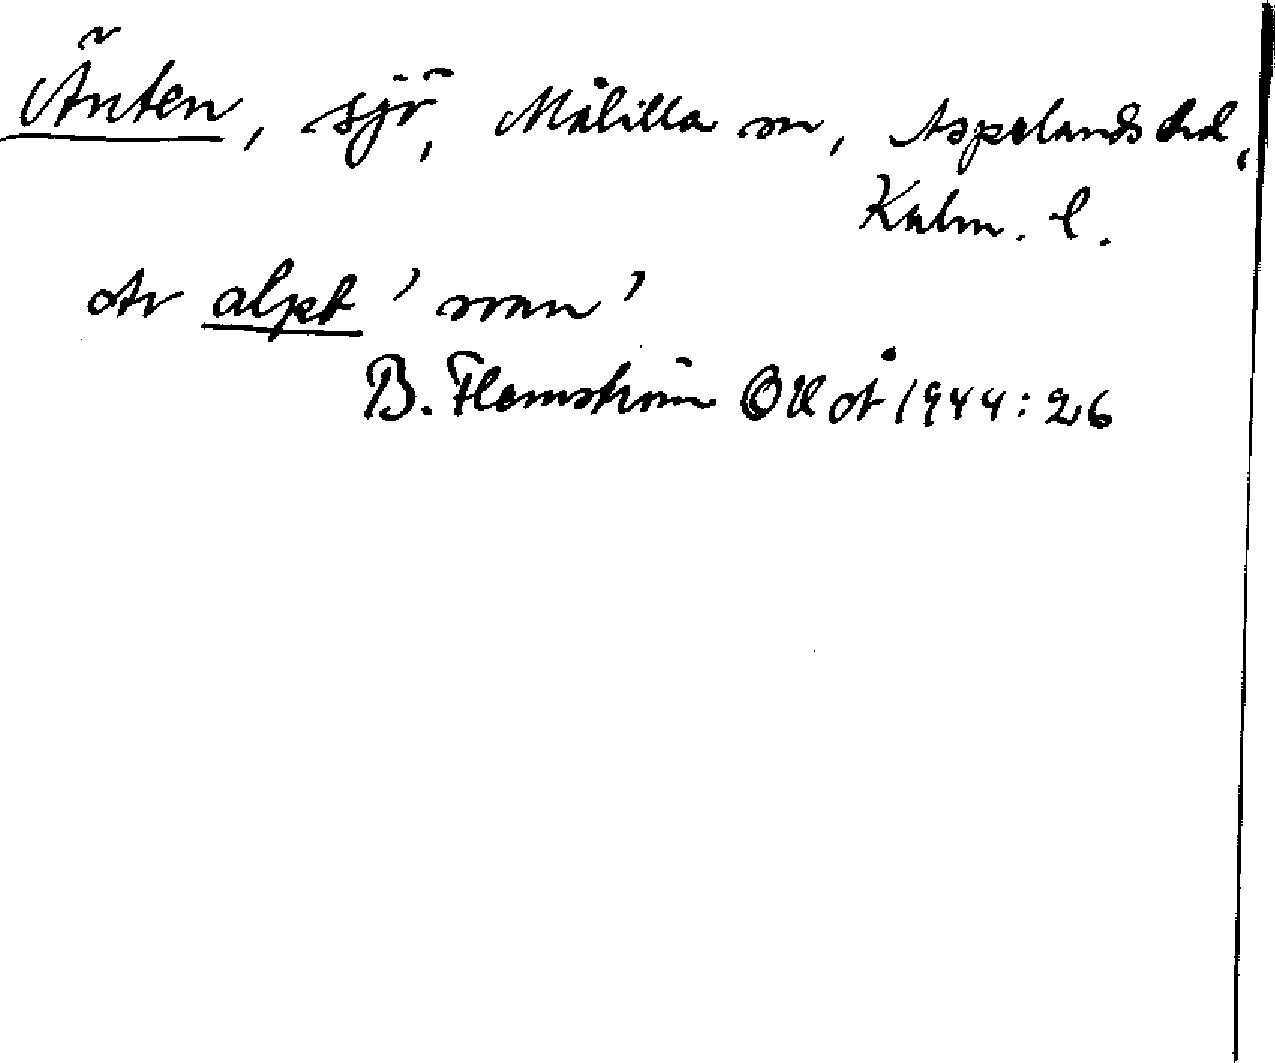 Änten, sjö, Målilla sn, Aspelands hd,
Kalm. l.
Av alpt 'svan'
B. Flemström OUÅ 1944:26